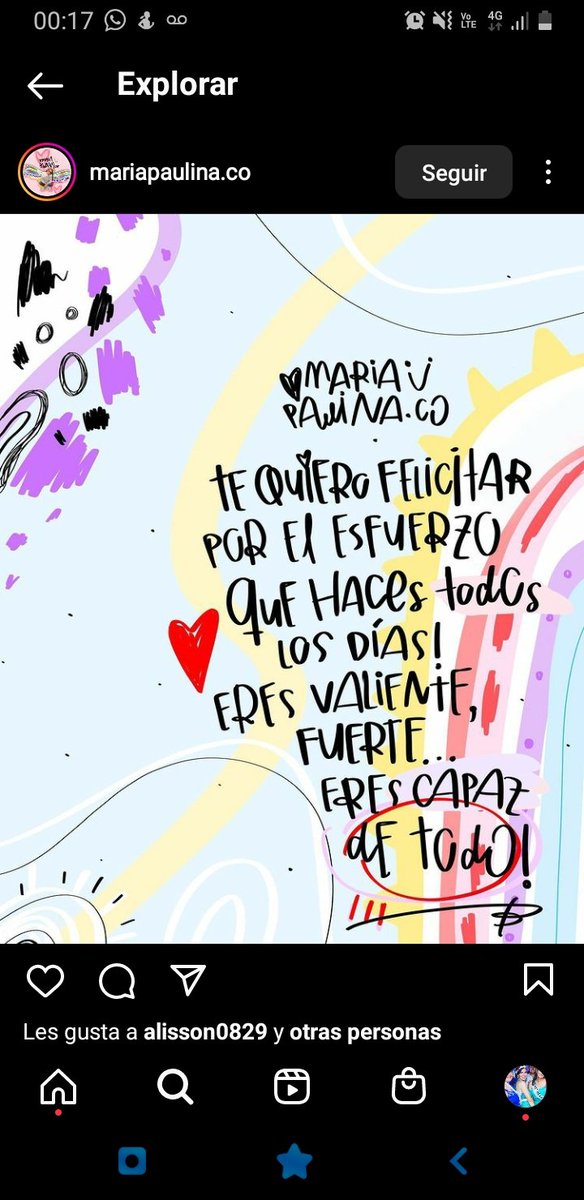 00:17
Vo
LTE
4G
Explorar
mariapaulina.co
Seguir
MARIA
PAULINA.CO
TE QUIERO FELICITAR
POR El ESFUERZO
QUE HACES todos
LOS DÍAS!
ERES VALIENTE,
FUERTE...
ERES CAPAZ
dE todo!
Les gusta a alisson0829 y otras personas